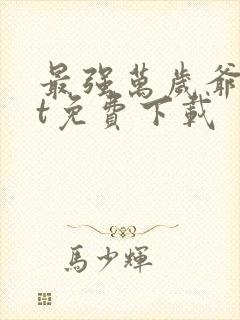 最強萬歲爺
t免費下載
馬少輝